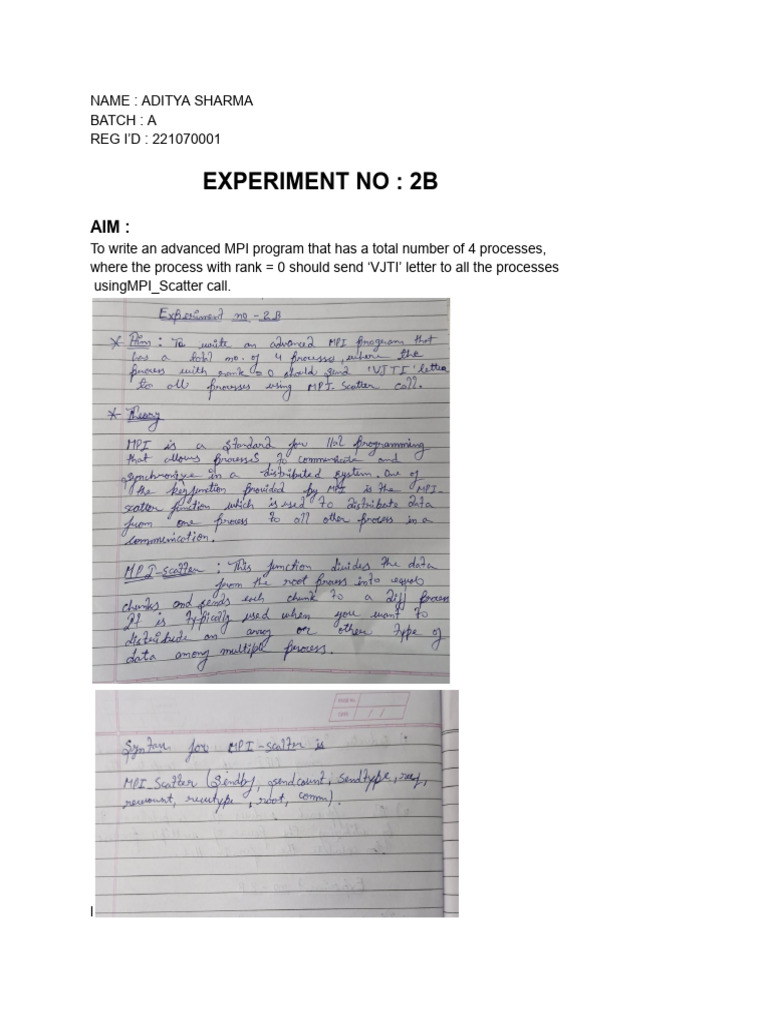 NAME : ADITYA SHARMA
BATCH : A
REG I'D : 221070001
EXPERIMENT NO : 2B
AIM :
To write an advanced MPI program that has a total number of 4 processes,
where the process with rank = 0 should send ‘VJTI’ letter to all the processes
usingMPI_Scatter call.
Experiment no - 2B
* Aim : To write an advanced MPI program that
has a total no. of 4 processes, where the
process with rank = 0 should send 'VJTI' letter
to all processes using MPI-Scatter call.
* Theory
MPI is a standard for llel programming
that allows processes to communicate and
synchronize in a distributed system. One of
the key function provided by MPI is the MPI-
scatter function which is used to distribute data
from one process to all other process in a
communication.
MPI-scatter : This function divides the data
from the root process into equal
chunks and sends each chunk to a diff process
It is typically used when you want to
distribute an array or other type of
data among multiple process.
PAGE No.
DATE / /
Syntax for MPI-scatter is
MPI_Scatter (sendbf, sendcount, sendtype,
recvcount, recvtype, root, comm).
I